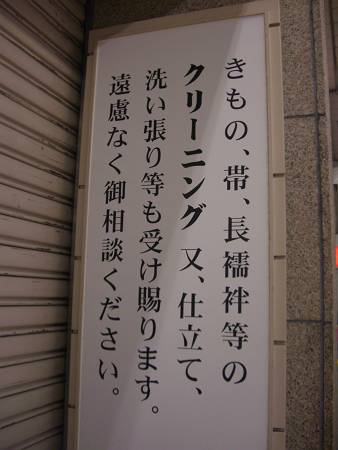 きもの、帯、長襦袢等の
クリーニング 又、仕立て、
洗い張り等も受け賜ります。
遠慮なく御相談ください。